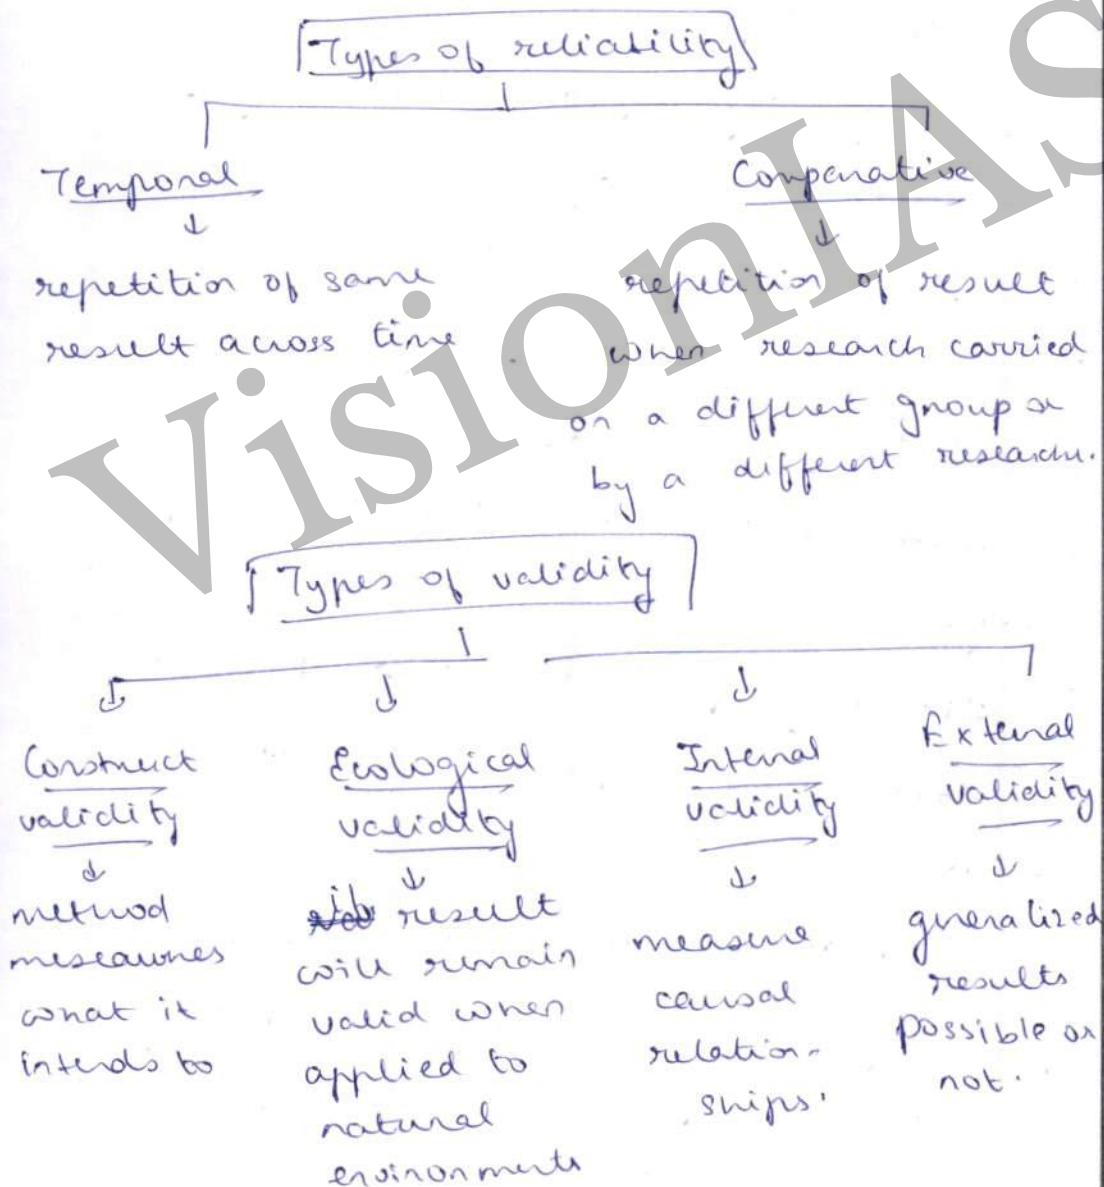 Types of reliability
Temporal
repetition of same
result across time
Comparative
repetition of result
when research carried
on a different group or
by a different researcher.
Types of validity
Construct
validity
method
meseaures
what it
intends to
Ecological
validity
result
will remain
valid when
applied to
natural
environments
Internal
validity
measure
causal
relation-
ships.
External
validity
generalized
results
possible or
not.
VisionIAS